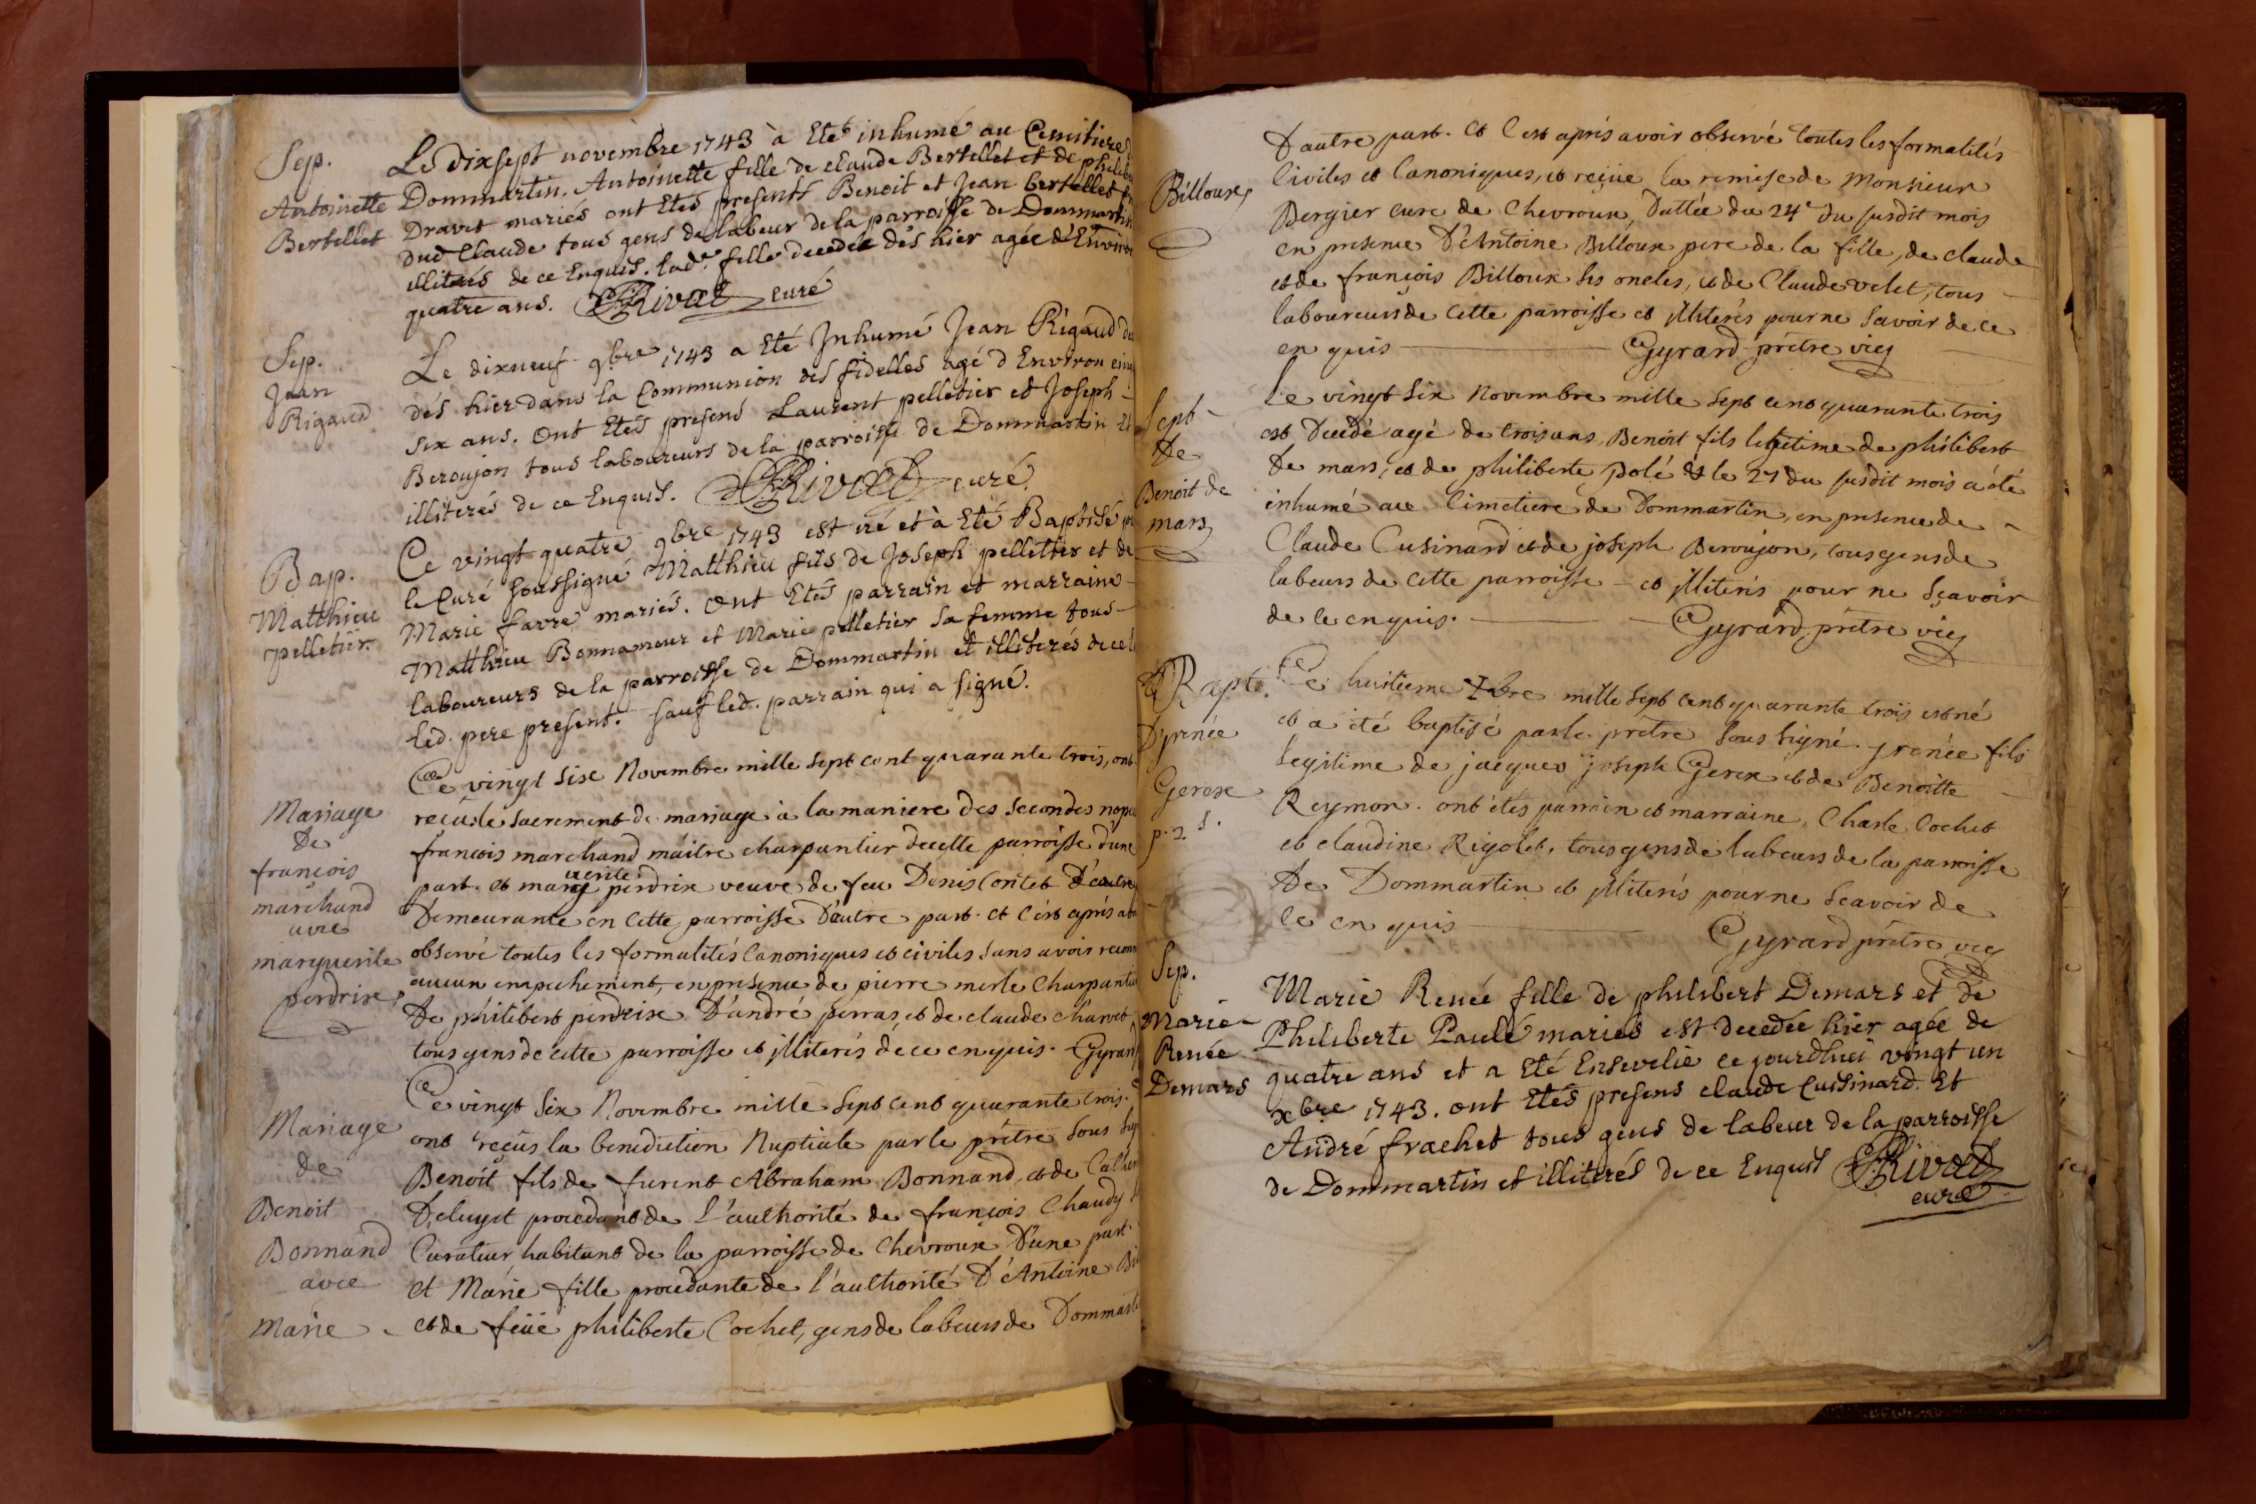 Sep.
Antoinette
Bertellet
Le dixsept novembre 1743 à Eté inhumé au Cemitiere
Dommartin. Antoinette fille de claude Bertellet et de
Dravet mariés ont Etés presents Benoit et Jean Bertellet
dud Claude tous gens de labeur de la parroisse de Dommartin
illiterés de ce Enquis. lade. fille decedée dès hier agée d'Environ
quatre ans. Rivat curé
Sep.
Jean
Rigaud
Le dixneuf 9bre 1743 a Eté Inhumé Jean Rigaud
des hier dans la Communion des fidelles agé d'Environ
six ans. Ont Etés presens Laurent pelletier et Joseph
Beroujon tous laboureurs de la parroisse de Dommartin
illiterés de ce Enquis. Rivat curé.
Bap.
Matthieu
pelletier.
Ce vingt quatre 9bre 1743 est né et à Eté Baptisé
le Curé soussigné Matthieu fils de Joseph pelletier et de
Marie favre mariés. Ont Etés parrain et marraine
Matthieu Bonnamour et Marie pelletier sa femme tous
laboureurs de la parroisse de Dommartin et illiterés de ce
led. pere present. sauf led. parrain qui a signé.
Mariage
de
françois
marchand
avec
marguerite
perdrix
Ce vingt six Novembre mille sept cent quarante trois, ont
reçû le sacrement de mariage à la maniere des secondes
françois marchand maître charpantier de cette parroisse d'une
part. et marguerite perdrix veuve de feu Denis Contet D'autre
Demeurante en cette parroisse D'autre part. et c'est aprés
observé toutes les formalités Canoniques et civiles sans avoir
aucun empechement, en presence de pierre merle Charpantier
De philibert perdrix D'andré perras, et de claude charvet
tous gens de cette parroisse et illiterés de ce enquis. Gyrard
Mariage
de
Benoit
Bonnand
avec
Marie
Ce vingt six Novembre mille sept cent quarante trois.
ont reçûs la benediction Nuptiale par le prêtre sous
Benoit fils de furent Abraham Bonnand, et de
Deluyst procedant de l'authorité de françois Chaudy
Curateur habitant de la parroisse de Chevroux D'une part.
et Marie fille procedante de l'authorité D'Antoine
et de feüe philiberte Cochet, gens de labeurs de
Billoux
D'autre part. et c'est aprés avoir observé toutes les formalités
Civiles et Canoniques, et reçüe la remise de Monsieur
Bergier curé de Chevroux, Dattée du 24e du susdit mois
en presence D'Antoine Billoux pere de la fille, de claude
et de françois Billoux ses oncles, et de Claude velet, tous
laboureurs de cette parroisse et illiterés pour ne savoir de ce
en quis Gyrard prêtre vic
Sept
De
Benoit de
mars
Le vingt six Novembre mille sept cent quarante trois
est Decedé agé de trois ans, Benoit fils legitime de philibert
De mars, et de philiberte polé & le 27 du susdit mois a été
inhumé au Cimetiere de Dommartin, en presence de
Claude Cusinard et de joseph Beroujon, tous gens de
labeurs de cette parroisse et illiterés pour ne sçavoir
de ce enquis. Gyrard, prêtre vic
Bapt.
D'yrenée
Gerox
Ce huitieme Xbre mille sept cent quarante trois est né
et a été baptisé par le prêtre sous signé. yrenée fils
legitime de jacques joseph Gerox et de Benoitte
Reymon. ont étés parrien et marraine, Charle Cochet
et claudine Rigolet, tous gens de labeurs de la parroisse
De Dommartin et illiterés pour ne Scavoir de
ce en quis Gyrard prêtre vic
Sep.
Marie
Renée
Demars
Marie Renée fille de philibert Demars et de
Philiberte Paulé mariés est decedée hier agée de
quatre ans et a Eté Ensevelie ce jourdhui vingt un
xbre 1743. ont Etés presens claude Cuisinard. Et
André frachet tous gens de labeur de la parroisse
de Dommartin et illiterés de ce Enquis Rivat
curé